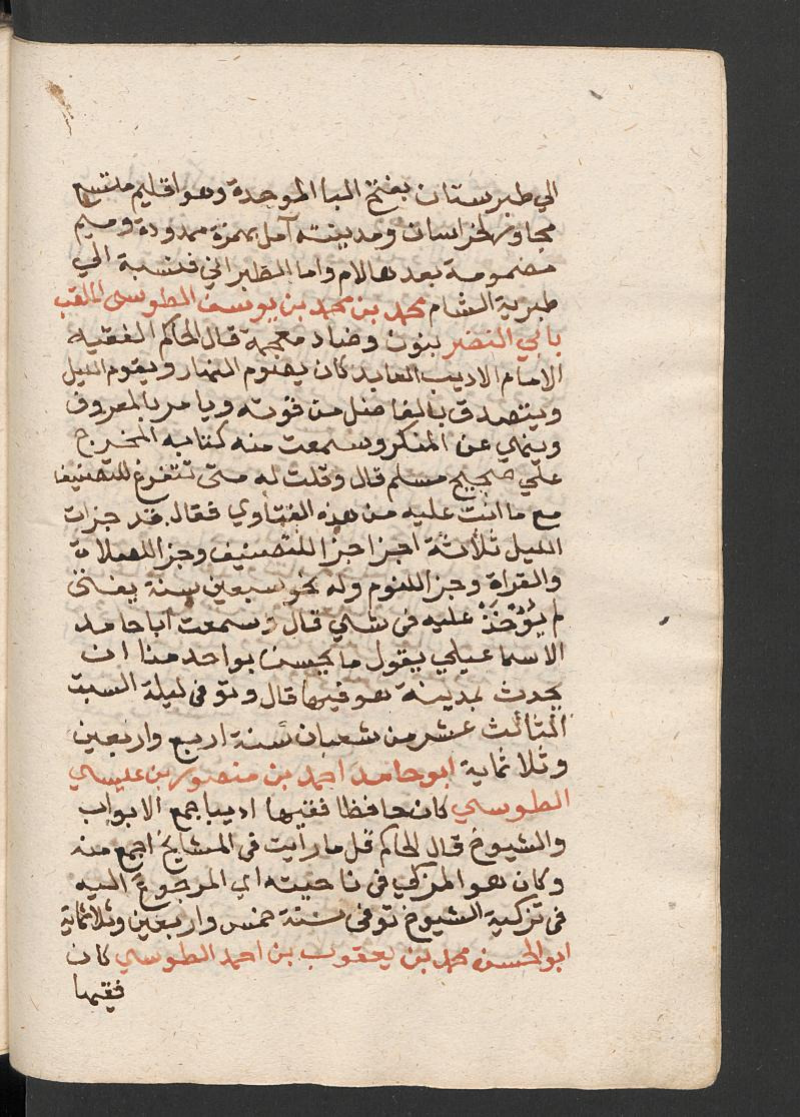 الي طبرستان بفتح البا الموحدة وهو اقليم متسع
مجاور لخراسان ومدينته آمل بهمزة ممدودة وميم
مضمومة بعدها لام واما الطبراني فنسبة الي
طبرية الشام محمد بن محمد بن يوسف الطوسي الملقب
بابي النضر بنون وضاد معجمة قال الحاكم الفقيه
الامام الاديب العابد كان يصوم النهار ويقوم الليل
ويتصدق بالفاضل من قوته ويامر بالمعروف
وينهي عن المنكر وسمعت منه كتابه المخرج
علي صحيح مسلم قال وقلت له متي تتفرغ للتصنيف
مع ما انت عليه من هذه الفتاوي فقال قد جزات
الليل ثلاثة اجزا جزا للتصنيف وجزا للصلاة
والقراة وجزا للنوم وله نحو سبعين سنة يفتي
لم يؤخذ عليه في شي قال وسمعت ابا حامد
الاسماعيلي يقول ما يحسن بواحد منا ان
يحدث بمدينة هو فيها قال وتوفي ليلة السبت
الثالث عشر من شعبان سنة اربع واربعين
وثلاثماية ابو حامد احمد بن منصور بن عيسي
الطوسي كان حافظا فقيها اديبا جمع الابواب
والشيوخ قال الحاكم قل ما رايت في المشايخ اجمع منه
وكان هو المزكي في ناحيته اي المرجوع اليه
في تزكية الشيوخ توفي سنة خمس واربعين وثلاثماية
ابو الحسن محمد بن يعقوب بن احمد الطوسي كان
فقيها